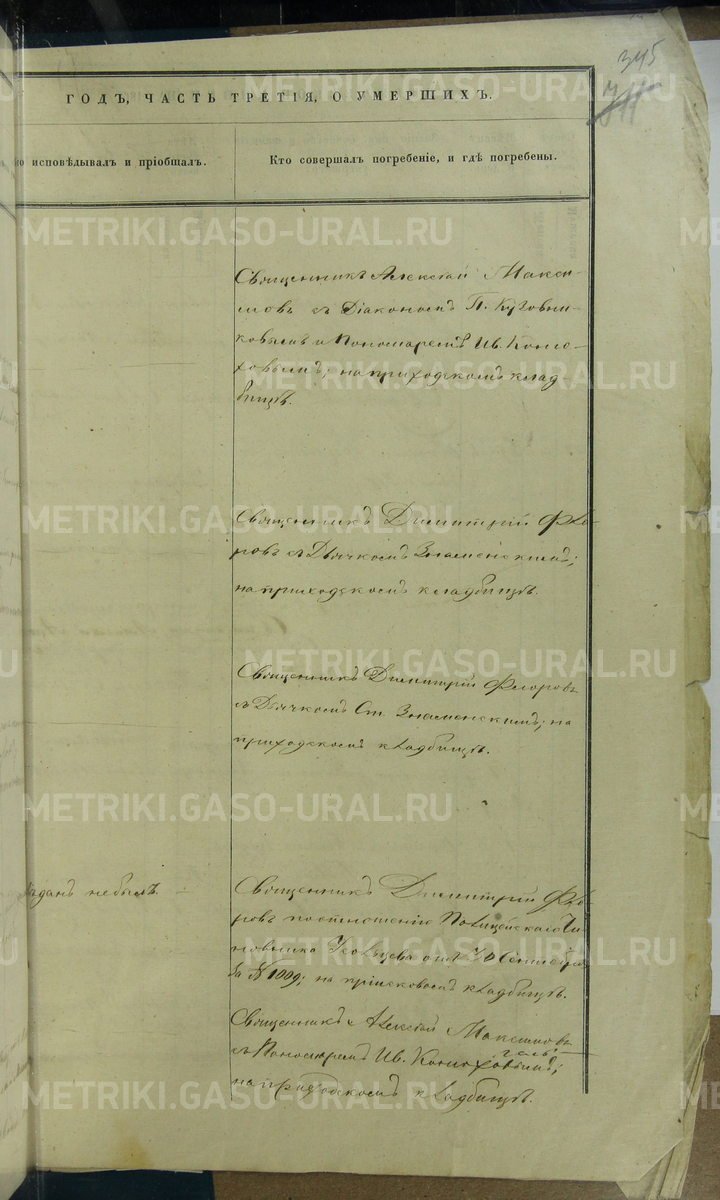 345
ГОДЪ, ЧАСТЬ ТРЕТІЯ, О УМЕРШИХЪ.
о исповѣдывалъ и пріобщалъ.
Кто совершалъ погребеніе, и гдѣ погребены.
Священникъ Алексій Макси-
мовъ съ Діакономъ П. Кузовни-
ковымъ и Пономаремъ Ив. Коню-
ховымъ; на приходскомъ клад-
бищѣ.
Священникъ Димитрій Фло-
ровъ съ Дьячкомъ Знаменскимъ;
на приходскомъ кладбищѣ.
Священникъ Димитрій Флоровъ
съ Дьячкомъ Ст. Знаменскимъ; на
приходскомъ кладбищѣ.
данъ не былъ.
Священникъ Димитрій Фло-
ровъ по отношенію Полицейскаго Чи-
новника отъ 30 Сентяб-
ря № 1009; на пріисковомъ кладбищѣ.
Священникъ Алексій Максимовъ
съ Пономаремъ Ив. Конюховымъ;
на приходскомъ кладбищѣ.
METRIKI.GASO-URAL.RU